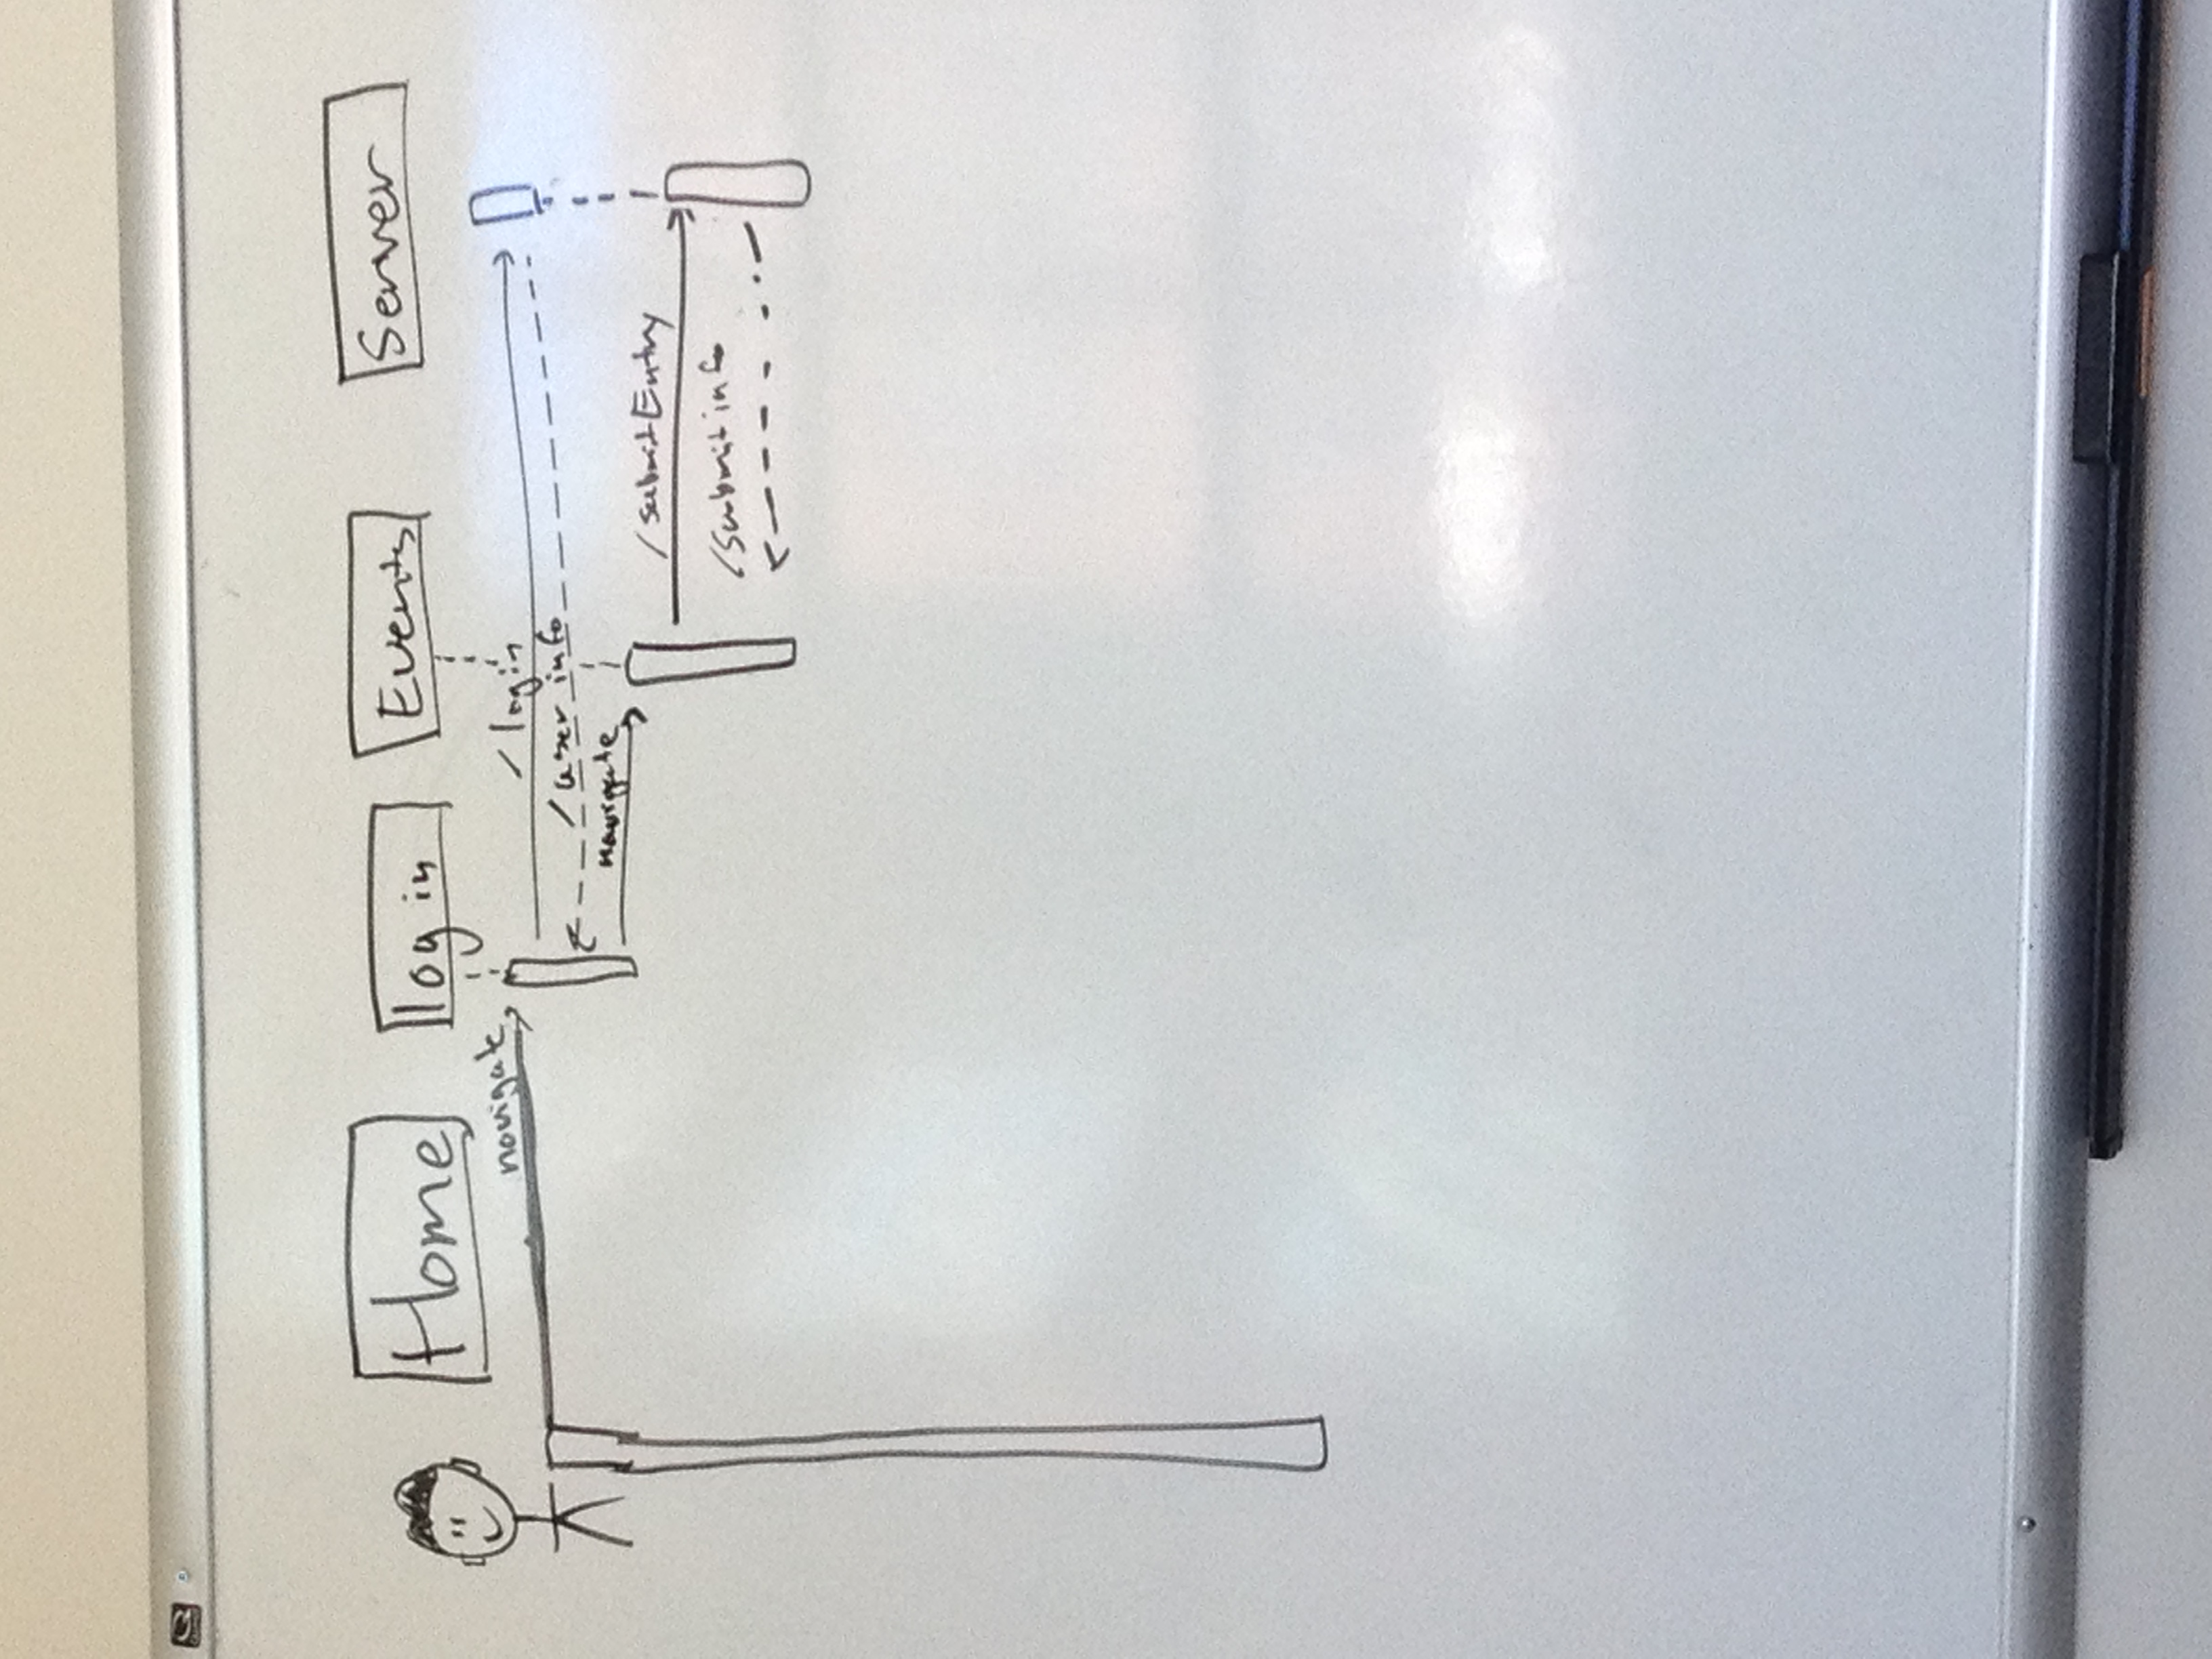 Home
log in
Events
Server
navigate
/ login
/ user info
navigate
/ submitEntry
/ Submit info